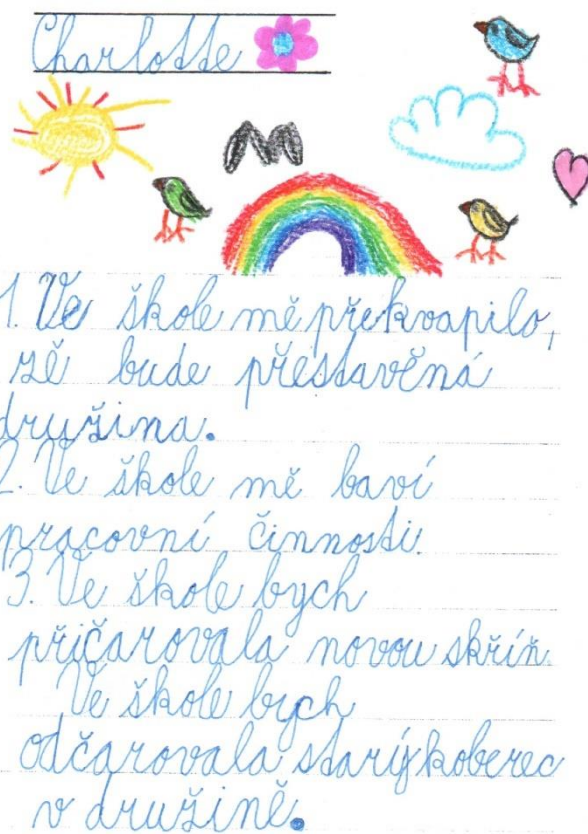 Charlotte
1. Ve škole mě překvapilo,
zě bude přestavěná
družina.
2. Ve škole mě baví
pracovní činnosti.
3. Ve škole bych
přičarovala novou skříň.
Ve škole bych
odčarovala starý koberec
v družině.